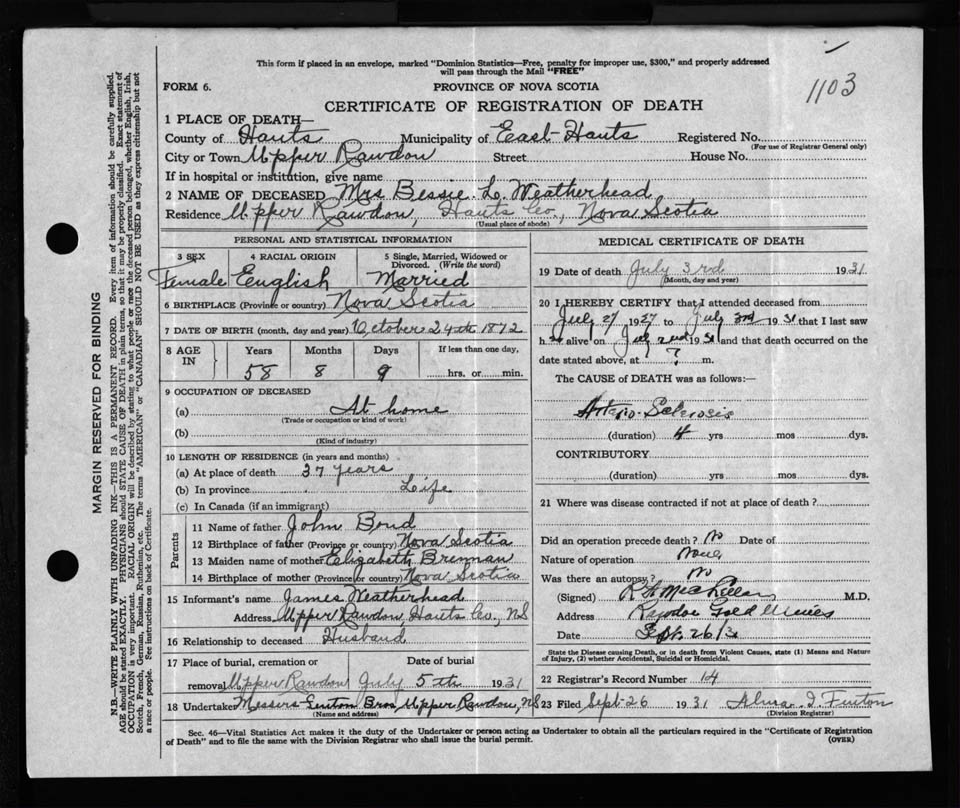 This form if placed in an envelope, marked "Dominion Statistics—Free, penalty for improper use, $300," and properly addressed
will pass through the Mail "FREE"
1103
FORM 6.
PROVINCE OF NOVA SCOTIA
CERTIFICATE OF REGISTRATION OF DEATH
1 PLACE OF DEATH—
County of Hants Municipality of East Hants Registered No.
(For use of Registrar General only)
City or Town Upper Rawdon Street House No.
If in hospital or institution, give name
2 NAME OF DECEASED Mrs Bessie L. Weatherhead
Residence Upper Rawdon, Hants Co., Nova Scotia
(Usual place of abode)
PERSONAL AND STATISTICAL INFORMATION
3 SEX 4 RACIAL ORIGIN 5 Single, Married, Widowed or Divorced. (Write the word)
Female English Married
6 BIRTHPLACE (Province or country) Nova Scotia
7 DATE OF BIRTH (month, day and year) October 24th 1872
8 AGE IN Years Months Days If less than one day,
58 8 9 hrs. or min.
9 OCCUPATION OF DECEASED
(a) At home
(Trade or occupation or kind of work)
(b)
(Kind of industry)
10 LENGTH OF RESIDENCE (in years and months)
(a) At place of death 37 years
(b) In province Life
(c) In Canada (if an immigrant)
Parents
11 Name of father John Bond
12 Birthplace of father (Province or country) Nova Scotia
13 Maiden name of mother Elizabeth Brennan
14 Birthplace of mother (Province or country) Nova Scotia
15 Informant's name James Weatherhead
Address Upper Rawdon, Hants Co., NS
16 Relationship to deceased Husband
17 Place of burial, cremation or removal Date of burial
Upper Rawdon July 5th 1931
18 Undertaker Messers Fenton Bros, Upper Rawdon, NS
(Name and address)
MEDICAL CERTIFICATE OF DEATH
19 Date of death July 3rd 1931
(Month, day and year)
20 I HEREBY CERTIFY that I attended deceased from
July 27 1927 to July 3rd 1931 that I last saw
h alive on July 2nd 1931 and that death occurred on the
date stated above, at ? m.
The CAUSE OF DEATH was as follows:—
Arterio-Sclerosis
(duration) 4 yrs mos dys.
CONTRIBUTORY
(duration) yrs mos dys.
21 Where was disease contracted if not at place of death?
Did an operation precede death? No Date of
Nature of operation None
Was there an autopsy? No
(Signed) M.D.
Address Rawdon Gold Mines
Date Sept. 26/31
State the Disease causing Death, or in death from Violent Causes, state (1) Means and Nature
of Injury, (2) whether Accidental, Suicidal or Homicidal.
22 Registrar's Record Number 14
23 Filed Sept 26 1931 Fenton
(Division Registrar)
Sec. 46—Vital Statistics Act makes it the duty of the Undertaker or person acting as Undertaker to obtain all the particulars required in the "Certificate of Registration
of Death" and to file the same with the Division Registrar who shall issue the burial permit.
(OVER)
MARGIN RESERVED FOR BINDING
N.B.—WRITE PLAINLY WITH UNFADING INK—THIS IS A PERMANENT RECORD. Every item of information should be carefully supplied.
AGE should be stated EXACTLY. PHYSICIANS should STATE CAUSE OF DEATH in plain terms, so that it may be properly classified. Exact statement of
OCCUPATION is very important. RACIAL ORIGIN will be described by stating to what people or race the deceased person belonged, whether English, Irish,
Scotch, French, German, Russian, Ruthenian, etc. The terms "AMERICAN" or "CANADIAN" SHOULD NOT BE USED as they express citizenship but not
a race or people. See instructions on back of Certificate.